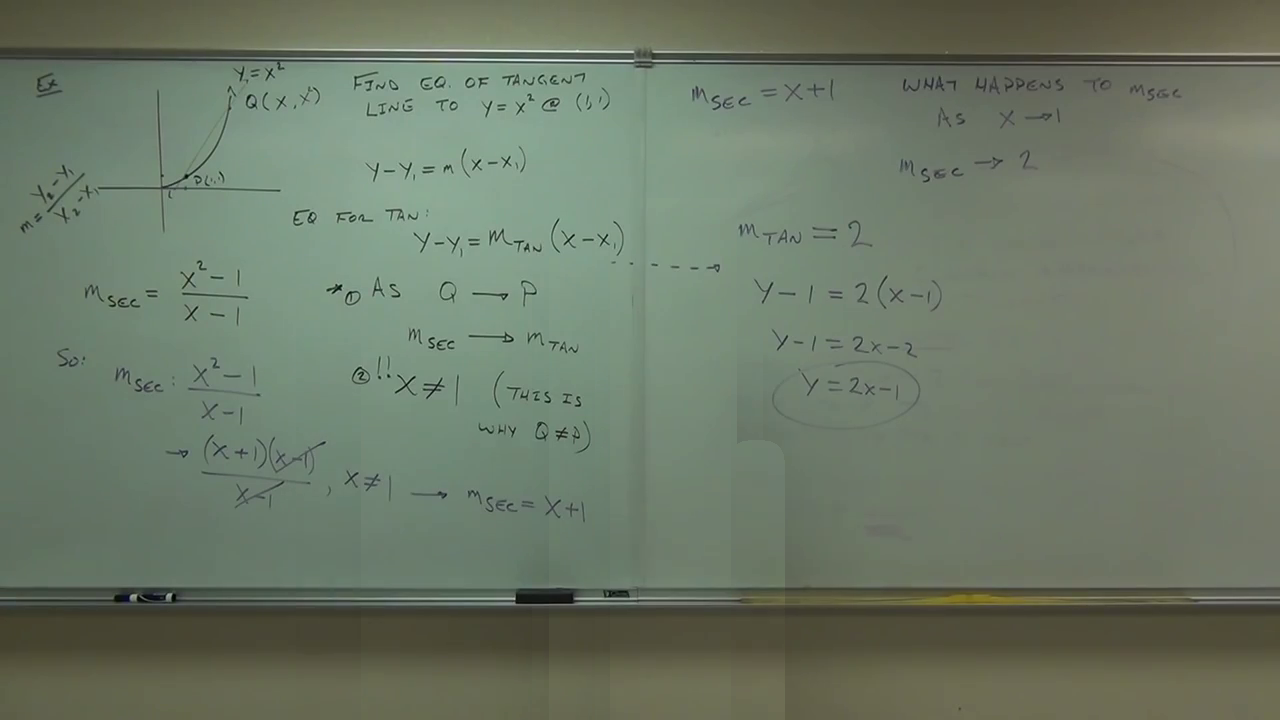 Ex
Y=X²
Q(X,X²)
P(1,1)
1
m=Y₂-Y₁/X₂-X₁
FIND EQ. OF TANGENT
LINE TO Y=X² @ (1,1)
Y-Y₁=m(X-X₁)
EQ FOR TAN:
Y-Y₁=m_TAN(X-X₁)
m_SEC = X²-1/X-1
*① AS Q→P
m_SEC → m_TAN
SO:
m_SEC: X²-1/X-1
② !! X≠1 (THIS IS
WHY Q≠P)
→ (X+1)(X-1)/X-1, X≠1 → m_SEC = X+1
m_SEC = X+1
WHAT HAPPENS TO m_SEC
AS X→1
m_SEC → 2
m_TAN = 2
Y-1=2(X-1)
Y-1=2X-2
Y=2X-1